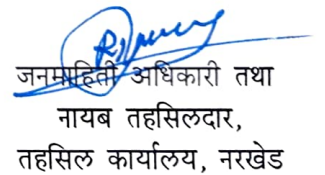 जनमाहिती अधिकारी तथा
नायब तहसिलदार,
तहसिल कार्यालय, नरखेड